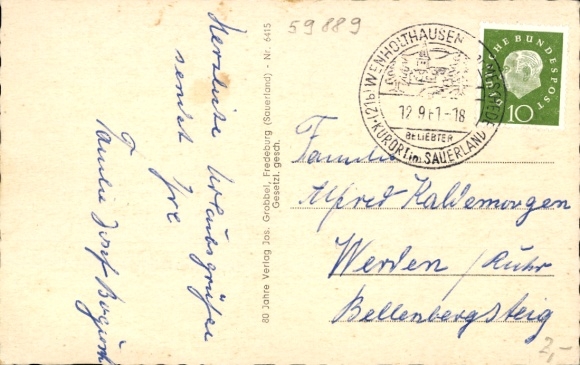 Herzliche Urlaubsgrüße
sendet Ihre
Familie Josef
80 Jahre Verlag Jos. Grobbel, Fredeburg (Sauerland) - Nr. 6415
Gesetzl. gesch.
59889
(21b) WENHOLTHAUSEN
12.9.61-18
BELIEBTER
KURORT im SAUERLAND
DEUTSCHE BUNDESPOST
10
Familie
Alfred Kaldemorgen
Werden / Ruhr
Bellenbergsteig
2,-